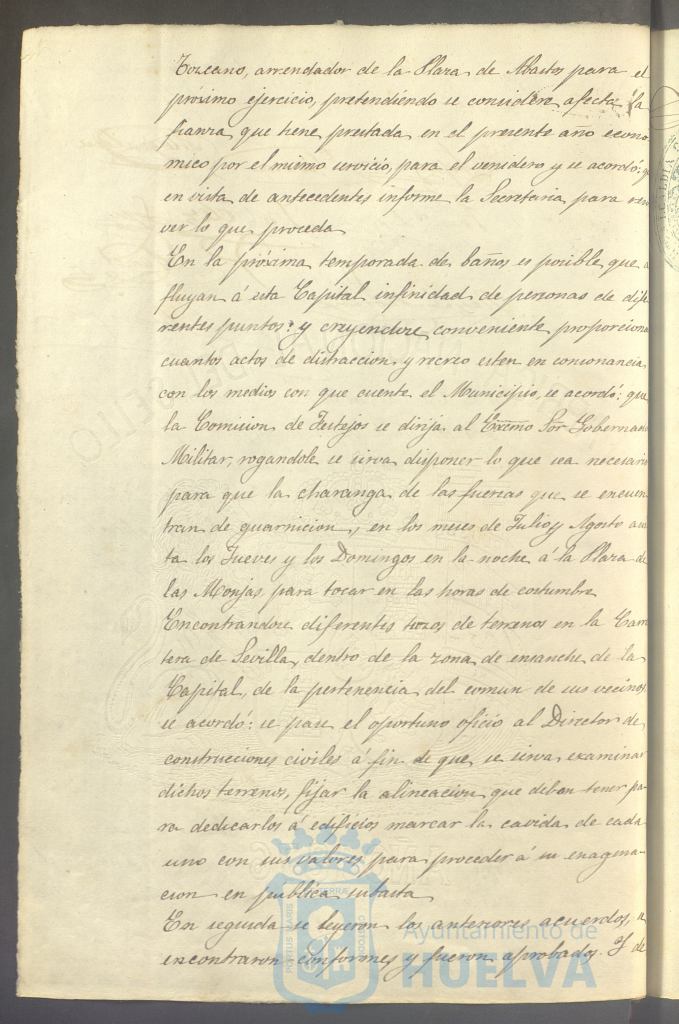 Tozeano, arrendador de la Plaza de Abastos para el
próximo ejercicio, pretendiendo se considere afecta la
fianza que tiene prestada en el presente año econo-
mico por el mismo servicio, para el venidero y se acordó: q
en vista de antecedentes informe la Secretaria para resol
ver lo que proceda
En la próxima temporada de baños es posible que a
fluyan á esta Capital infinidad de personas de dife
rentes puntos: y creyendose conveniente proporciona
cuantos actos de distraccion y recreo esten en consonancia
con los medios con que cuente el Municipio, se acordó: que
la Comision de Festejos se dirija al Excmo Sor Gobernad
Militar, rogandole se sirva disponer lo que sea necesario
para que la charanga de las fuerzas que se encuen
tran de guarnicion, en los meses de Julio y Agosto asis
ta los Jueves y los Domingos en la noche á la Plaza de
las Monjas, para tocar en las horas de costumbre
Encontrandose diferentes trozos de terrenos en la Carre
tera de Sevilla, dentro de la zona de ensanche de la
Capital, de la pertenencia del comun de sus vecinos,
se acordó: se pase el oportuno oficio al Director de
construcciones civiles á fin de que se sirva examinar
dichos terrenos, fijar la alineacion que deban tener pa
ra dedicarlos á edificios marcar la cavida de cada
uno con sus valores para proceder á su enagena-
cion en publica subasta
En seguida se leyeron los anteriores acuerdos, se
encontraron conformes y fueron aprobados. Y de
Ayuntamiento de
HUELVA